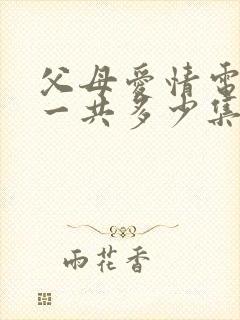 父母愛情電
一共多少集
雨花香